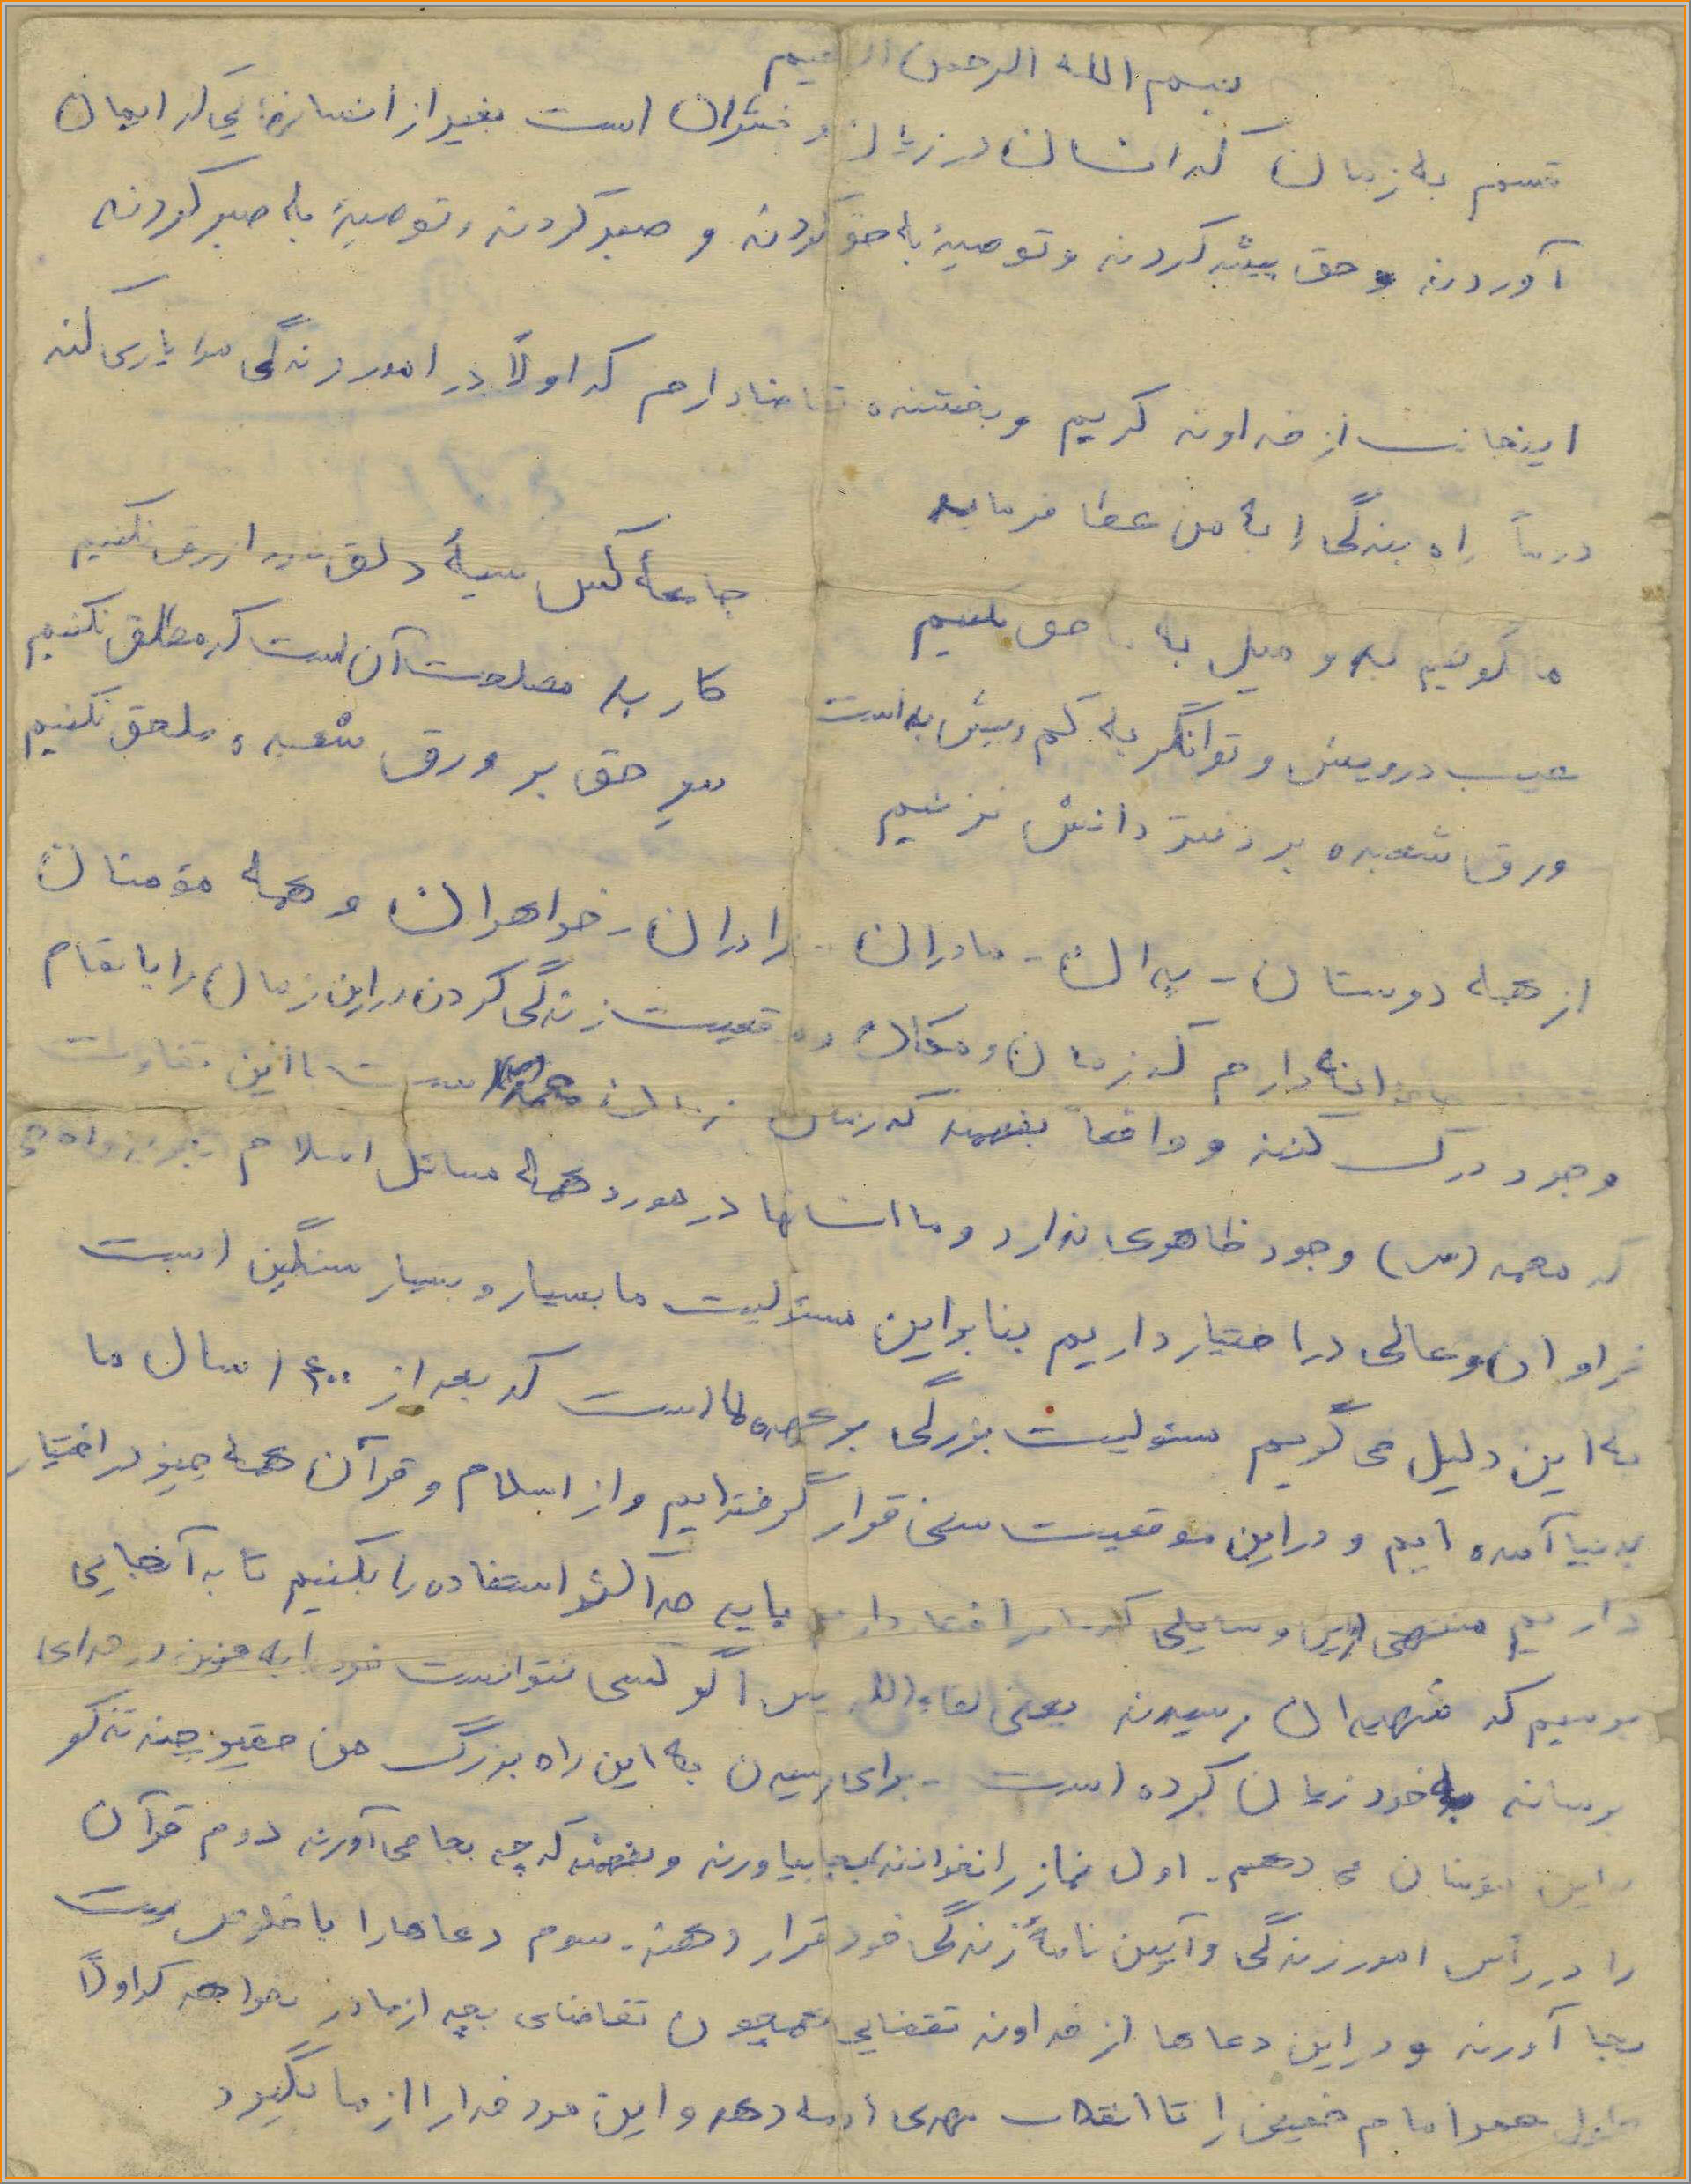 بسم الله الرحمن الرحیم
قسم به زمان که انسان در زیان و خسران است بغیر از انسانهایی که ایمان
آوردند و حق پیشه کردند و توصیهٔ به حق کردند و صبر کردند و توصیهٔ به صبر کردند
اینجانب از خداوند کریم و بخشنده تقاضا دارم که اولاً در امور زندگی مرا یاری کند
دوماً راه بندگی را به من عطا فرماید
ما نگوئیم بد و میل به ناحق نکنیم جامهٔ کس سیهٔ و دلق خود ازرق نکنیم
عیب درویش و توانگر به کم و بیش بد است کار بد مصلحت آن است که مطلق نکنیم
ورق شعبده بر دفتر دانش نزنیم سر حق بر ورق شعبده ملحق نکنیم
از همه دوستان - پدران - مادران - برادران - خواهران و همه مؤمنان
دارم که زمان و مکان و موقعیت زندگی کردن در این زمان را با تمام
وجود درک کنند و واقعاً بفهمند که زمان زمان محمد (ص) است با این تفاوت
که محمد (ص) وجود ظاهری ندارد و ما انسانها در مورد همه مسائل اسلام
فراوان و عالی در اختیار داریم بنابراین مسئولیت ما بسیار و بسیار سنگین است
به این دلیل می گویم مسئولیت بزرگی بر عهده ما است که بعد از ۱۴۰۰ سال ما
بدنیا آمده ایم و در این موقعیت سنی قرار گرفته ایم و از اسلام و قرآن همه چیز در اختیار
داریم منتهی از این وسایلی که در اختیار داریم باید حداکثر استفاده را بکنیم تا به آنجایی
برسیم که شهیدان رسیدند یعنی لقاءالله پس اگر کسی نتوانست خود را به
برساند به خود زیان کرده است - برای رسیدن به این راه بزرگ من حقیر چند تذکر
به این مؤمنان می دهم - اول نماز را نخوانند بجا بیاورند و بفهمند که چه بجا می آورند دوم قرآن
را در رأس امور زندگی و آیین نامهٔ زندگی خود قرار دهند - سوم دعاها را با خلوص نیت
بجا آورند و در این دعاها از خداوند تقاضایی همچون تقاضای بچه از مادر بخواهد که اولاً
طول عمر امام خمینی را تا انقلاب مهدی ادامه دهد و این مرد خدا را از ما نگیرد